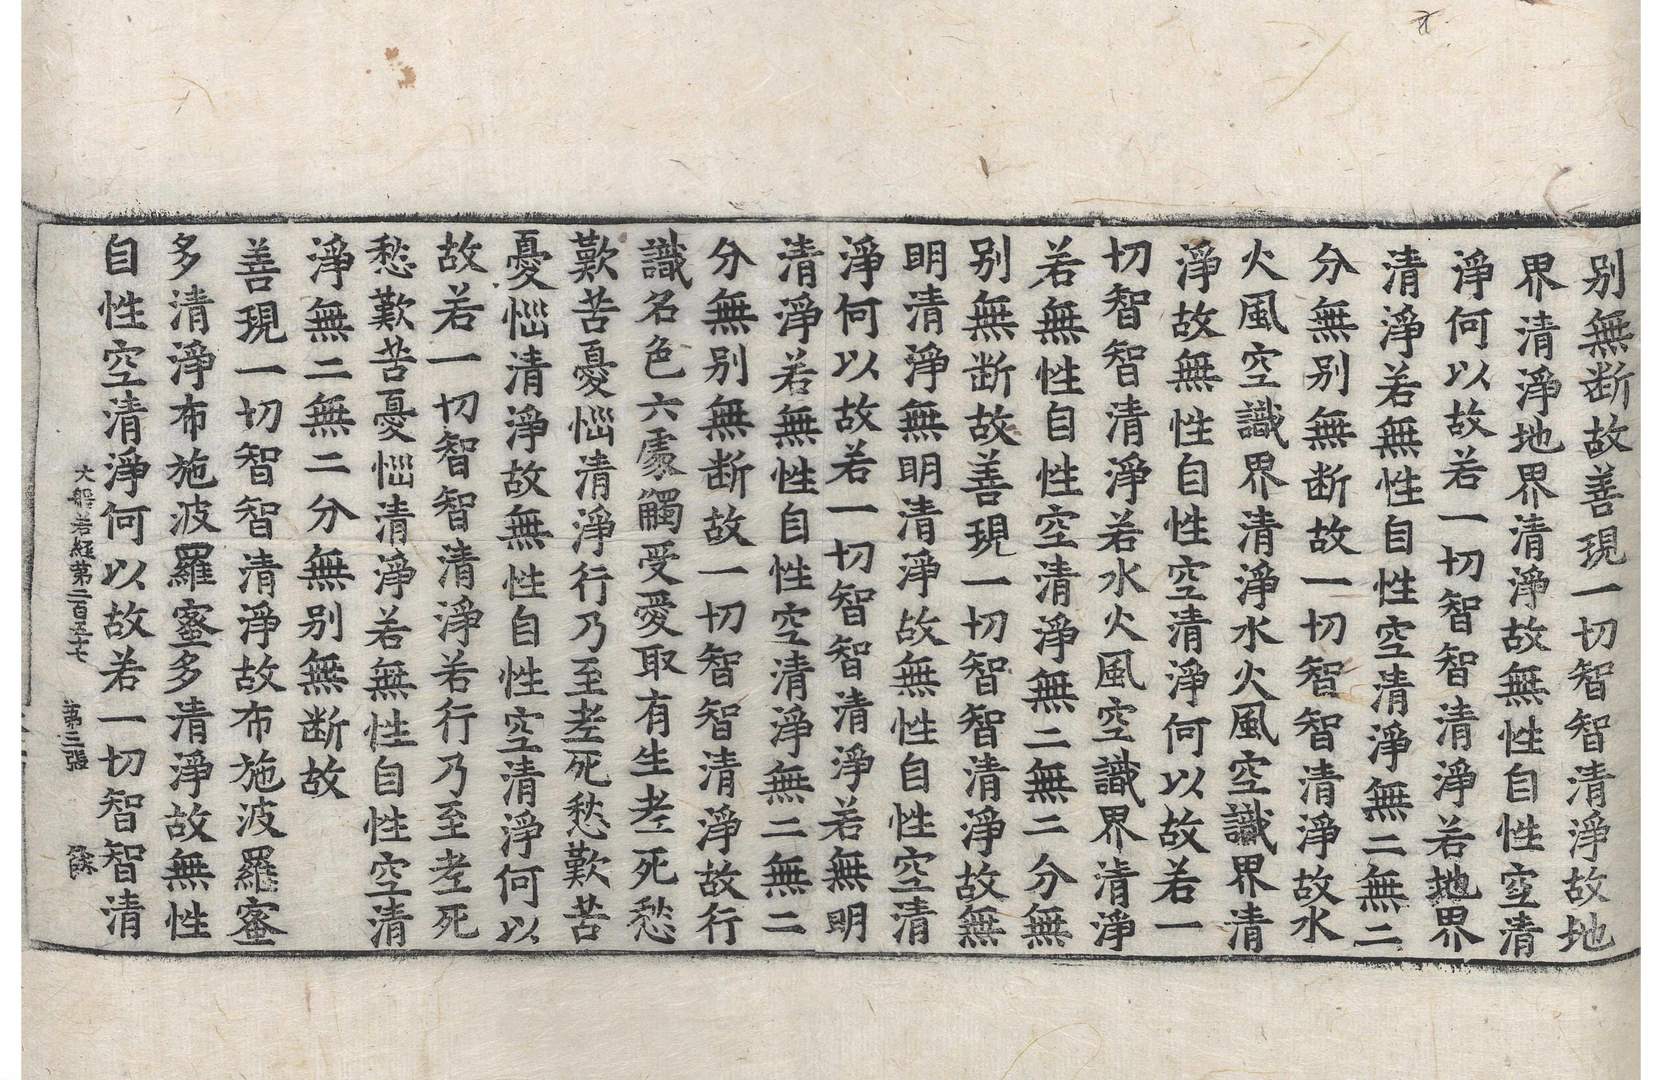 别無断故善現一切智智清淨故地
界清淨地界清淨故無性自性空清
淨何以故若一切智智清淨若地界
清淨若無性自性空清淨無二無二
分無别無断故一切智智清淨故水
火風空識界清淨水火風空識界清
淨故無性自性空清淨何以故若一
切智智清淨若水火風空識界清淨
若無性自性空清淨無二無二分無
别無断故善現一切智智清淨故無
明清淨無明清淨故無性自性空清
淨何以故若一切智智清淨若無明
清淨若無性自性空清淨無二無二
分無别無断故一切智智清淨故行
識名色六處觸受愛取有生老死愁
歎苦憂惱清淨行乃至老死愁歎苦
憂惱清淨故無性自性空清淨何以
故若一切智智清淨若行乃至老死
愁歎苦憂惱清淨若無性自性空清
淨無二無二分無别無断故
善現一切智智清淨故布施波羅蜜
多清淨布施波羅蜜多清淨故無性
自性空清淨何以故若一切智智清
大般若經第二百五十七 第三張